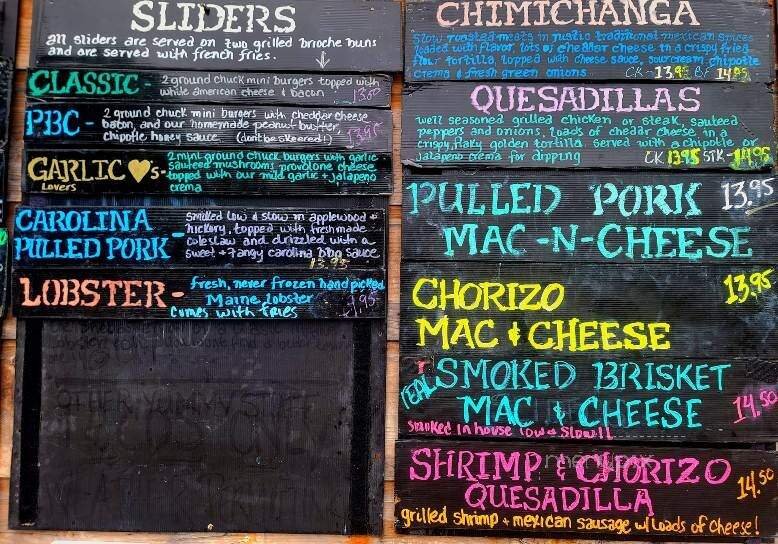 SLIDERS
all sliders are served on two grilled brioche buns
and are served with french fries.
CLASSIC - 2 ground chuck mini burgers topped with
white american cheese & bacon
PBC - 2 ground chuck mini burgers with cheddar cheese
bacon, and our homemade peanut butter,
chipotle honey sauce (don't be skeered!) 13.95
GARLIC ♥'s -
Lovers
2 mini ground chuck burgers with garlic
sauteed mushrooms provolone cheese
topped with our mild garlic + jalapeno
crema
CAROLINA
PULLED PORK -
smoked low & slow in applewood +
hickory, topped with fresh made
coleslaw and drizzled with a
sweet + tangy carolina bbq sauce
13.95
LOBSTER -
fresh, never frozen hand picked
Maine lobster
comes with fries
OTHER YUMMY STUFF
CHIMICHANGA
slow roasted meats in rustic traditional mexican spices
loaded with flavor, lots of cheddar cheese in a crispy fried
flour tortilla, topped with cheese sauce, sour cream, chipotle
crema & fresh green onions CK - 13.95 BF 14.95
QUESADILLAS
well seasoned grilled chicken or steak, sauteed
peppers and onions, loads of chedar cheese in a
crispy, flaky golden tortilla served with a chipotle or
jalapeno crema for dipping CK 13.95 STK - 14.95
PULLED PORK 13.95
MAC -N- CHEESE
CHORIZO 13.95
MAC & CHEESE
REAL SMOKED BRISKET
MAC & CHEESE 14.50
smoked in house low & slow!!
SHRIMP & CHORIZO 14.50
QUESADILLA
grilled shrimp + mexican sausage w/ loads of cheese!